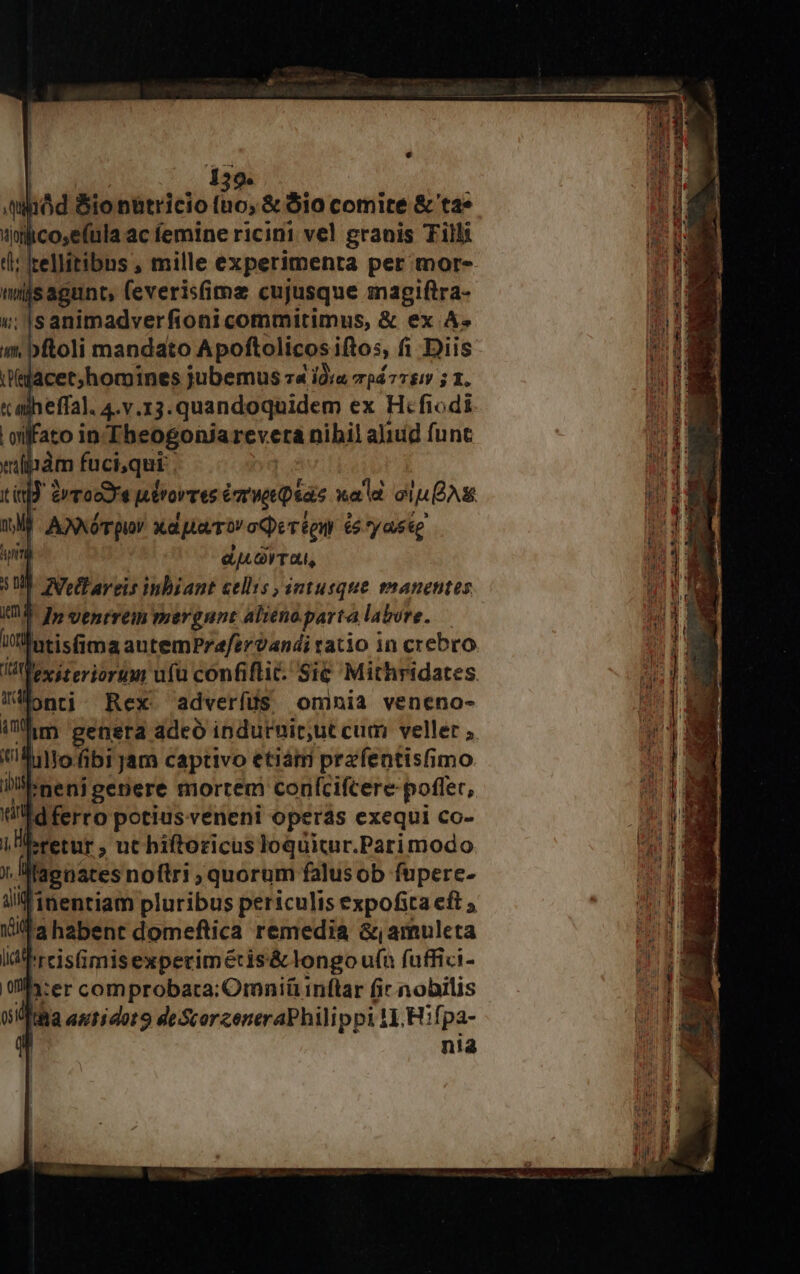 139.
quòd ꝺio nutricio ſuo, & ꝺio comite & ta-
co, eſula ac ſemine ricini vel granis Tilli
tellitibus, mille experimenta per mor-
agunt, ſeverisſimæ cujusque magiſtra-
s animadverſioni committimus, & ex A-
poſtoli mandato Apoſtolicos iſtos, ſi Diis
acet, homines jubemus τὰ ἴδια πράττειν ; 1.
heſſal. 4. v. 13. quandoquidem ex Heſiodi
fato in Theogonia revera nihil aliud ſunt
àm fuci, qui
ἔντοσθε μένοντες ἐπηρεφέας κατὰ σίμβλȣς
Ἀλλότριον κάματον σφετέρην ἐς γαστέρ᾽
ἀμῶνται,
Nectareis inhiant cellis, intusque manentes
In ventrem mergunt alieno parta labore.
utisſima autem Præſervandi ratio in crebro
exiteriorum uſu conſiſtit. Sic Mithridates
Ponti Rex adverſus omnia veneno-
um genera adeò induruit, ut cum vellet,
nullo ſibi jam captivo etiam præſentisſimo
veneni genere mortem conſciſcere poſſet,
d ferro potius veneni operas exequi co-
eretur, ut hiſtoricus loquitur. Pari modo
Magnates noſtri, quorum ſalus ob ſupere-
inentiam pluribus periculis expoſita eſt,
a habent domeſtica remedia & amuleta
rtisſimis experimētis & longo uſu ſuffici-
ter comprobata: Omniū inſtar ſit nobilis
illa antidoto de Scorzonera Philippi II. Hiſpa-
nia